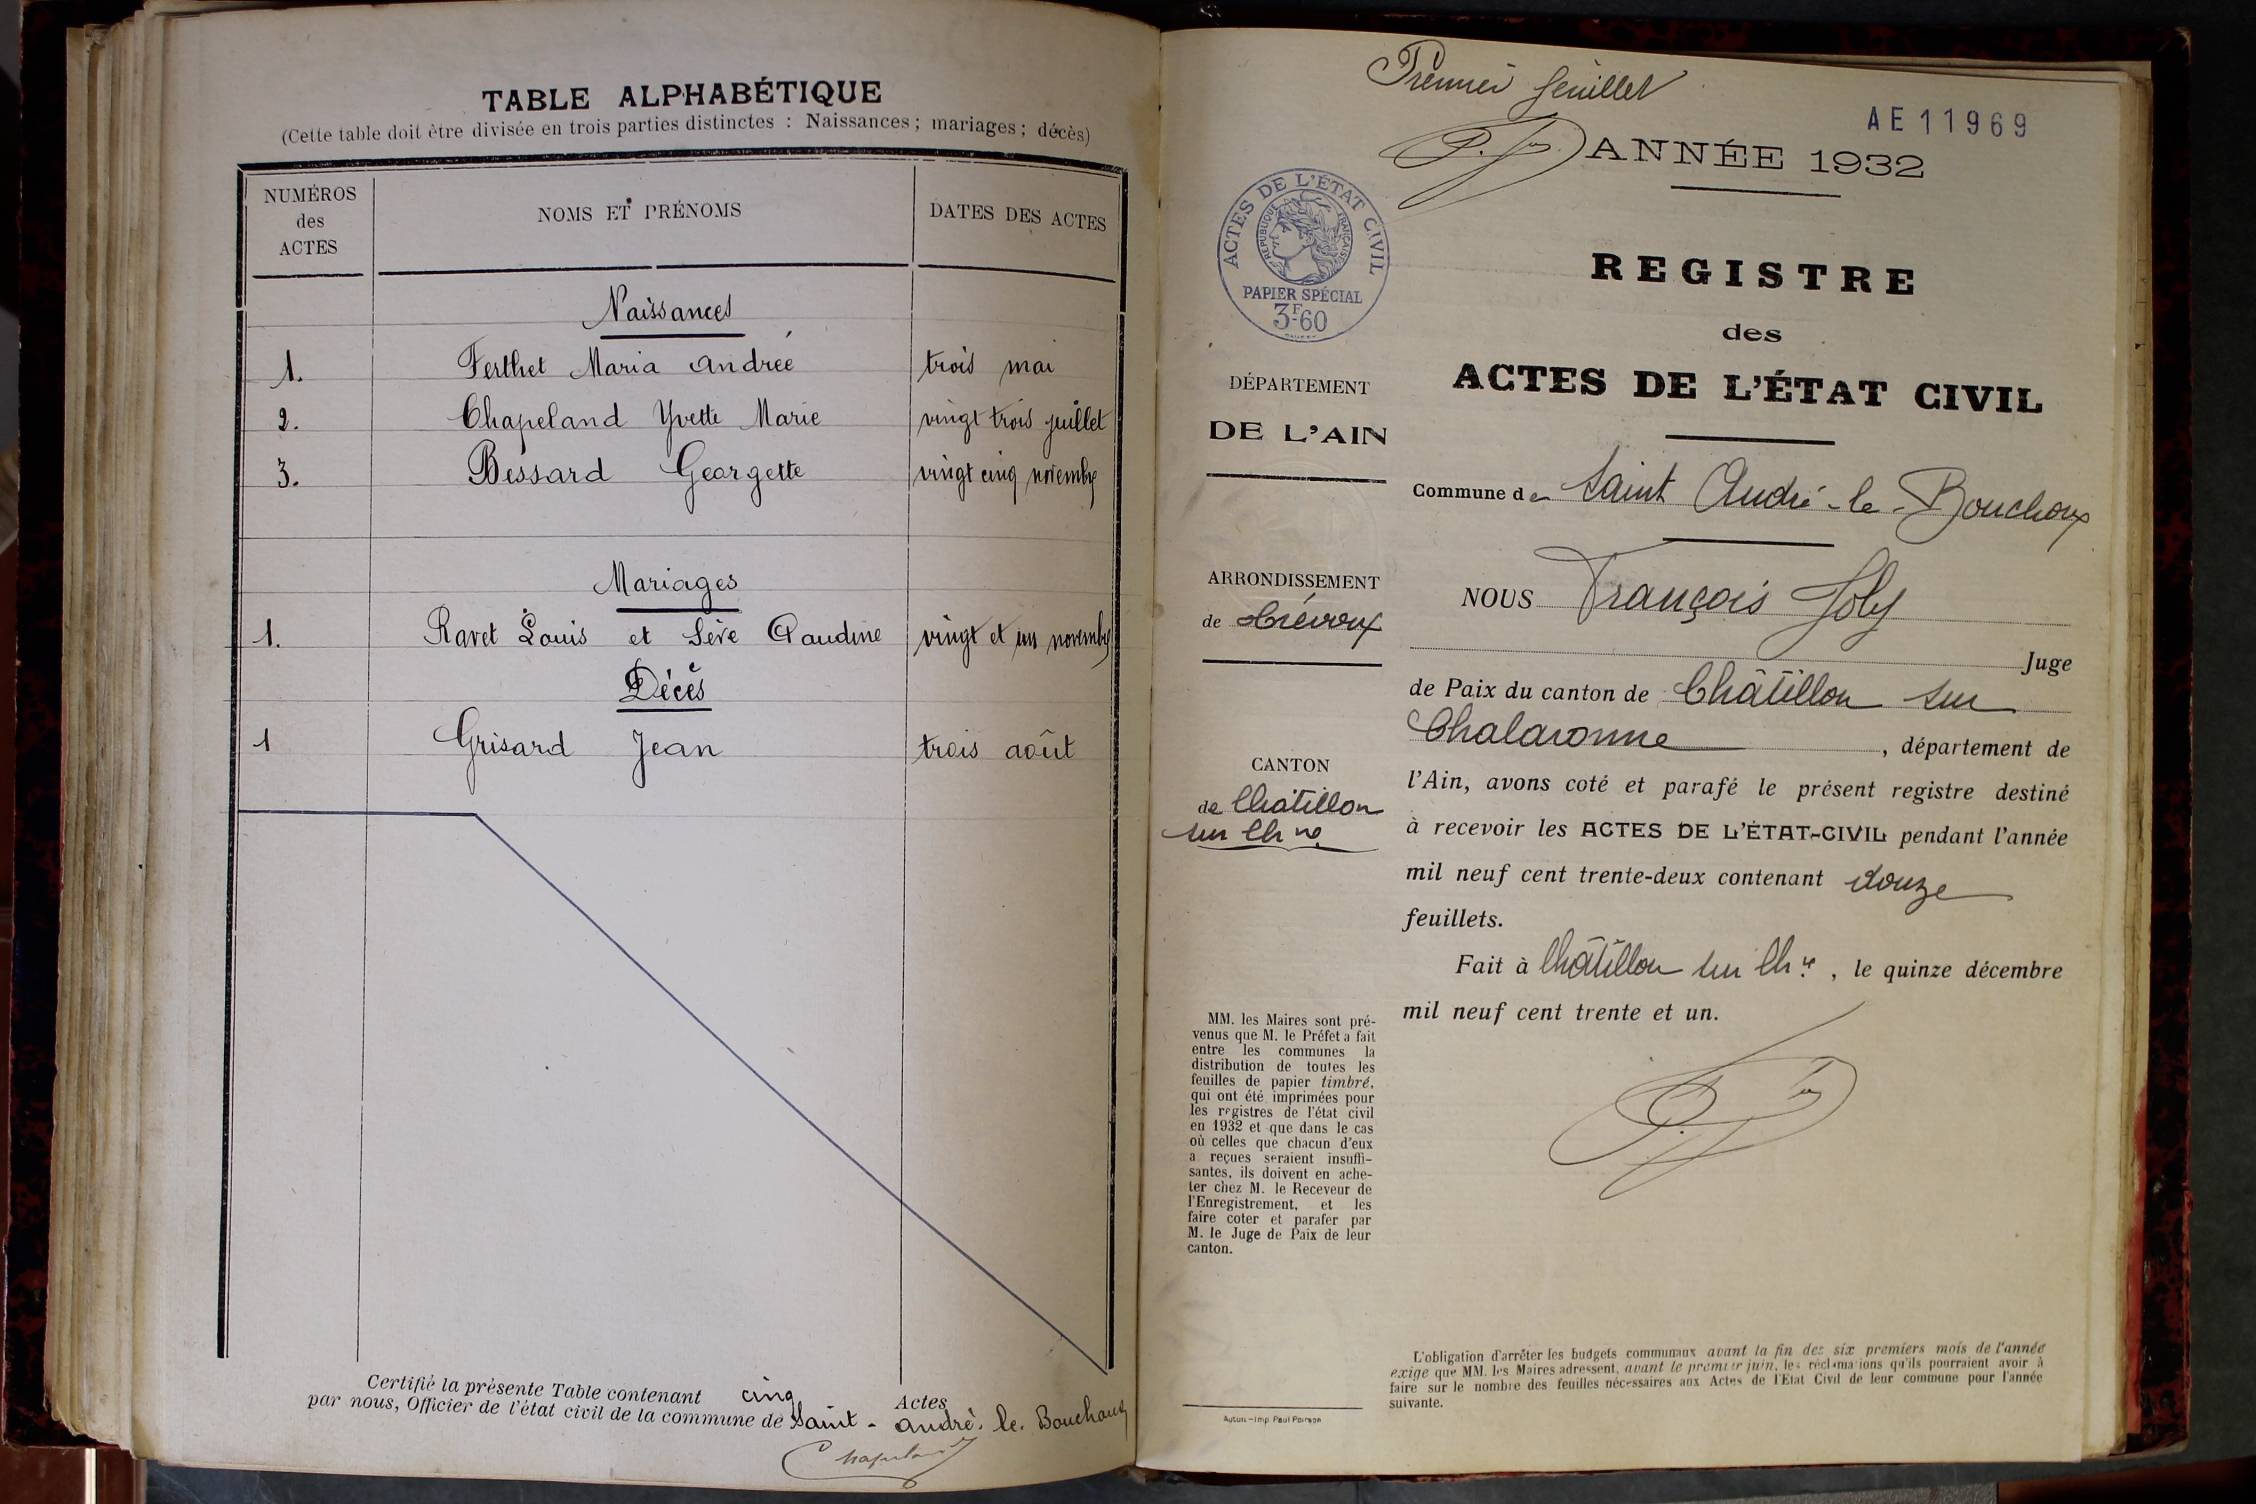 TABLE ALPHABÉTIQUE
(Cette table doit être divisée en trois parties distinctes : Naissances ; mariages ; décès)
NUMÉROS
des
ACTES
NOMS ET PRÉNOMS
DATES DES ACTES
Naissances
1. Ferthet Maria Andrée trois mai
2. Chapeland Yvette Marie vingt trois juillet
3. Bessard Georgette vingt cinq novembre
Mariages
1. Ravet Louis et Sève Claudine vingt et un novembre
Décès
1 Grisard Jean trois août
Certifié la présente Table contenant cinq Actes
par nous, Officier de l'état civil de la commune de Saint-André-le-Bouchoux
Chapeland
Premier feuillet
AE 11969
ANNÉE 1932
ACTES DE L'ÉTAT CIVIL
RÉPUBLIQUE FRANÇAISE
PAPIER SPÉCIAL
3F60
DÉPARTEMENT
DE L'AIN
ARRONDISSEMENT
de Trévoux
CANTON
de Châtillon
sur Chne
MM. les Maires sont pré-
venus que M. le Préfet a fait
entre les communes la
distribution de toutes les
feuilles de papier timbré,
qui ont été imprimées pour
les registres de l'état civil
en 1932 et que dans le cas
où celles que chacun d'eux
a reçues seraient insuffi-
santes, ils doivent en ache-
ter chez M. le Receveur de
l'Enregistrement, et les
faire coter et parafer par
M. le Juge de Paix de leur
canton.
Autun.—Imp. Paul Poirson
REGISTRE
des
ACTES DE L'ÉTAT CIVIL
Commune de Saint André-le-Bouchoux
NOUS François Joly
Juge
de Paix du canton de Châtillon sur
Chalaronne, département de
l'Ain, avons coté et parafé le présent registre destiné
à recevoir les ACTES DE L'ÉTAT-CIVIL pendant l'année
mil neuf cent trente-deux contenant douze
feuillets.
Fait à Châtillon sur Chne, le quinze décembre
mil neuf cent trente et un.
L'obligation d'arrêter les budgets communaux avant la fin des six premiers mois de l'année
exige que MM. les Maires adressent, avant le premier juin, les réclamations qu'ils pourraient avoir à
faire sur le nombre des feuilles nécessaires aux Actes de l'Etat Civil de leur commune pour l'année
suivante.